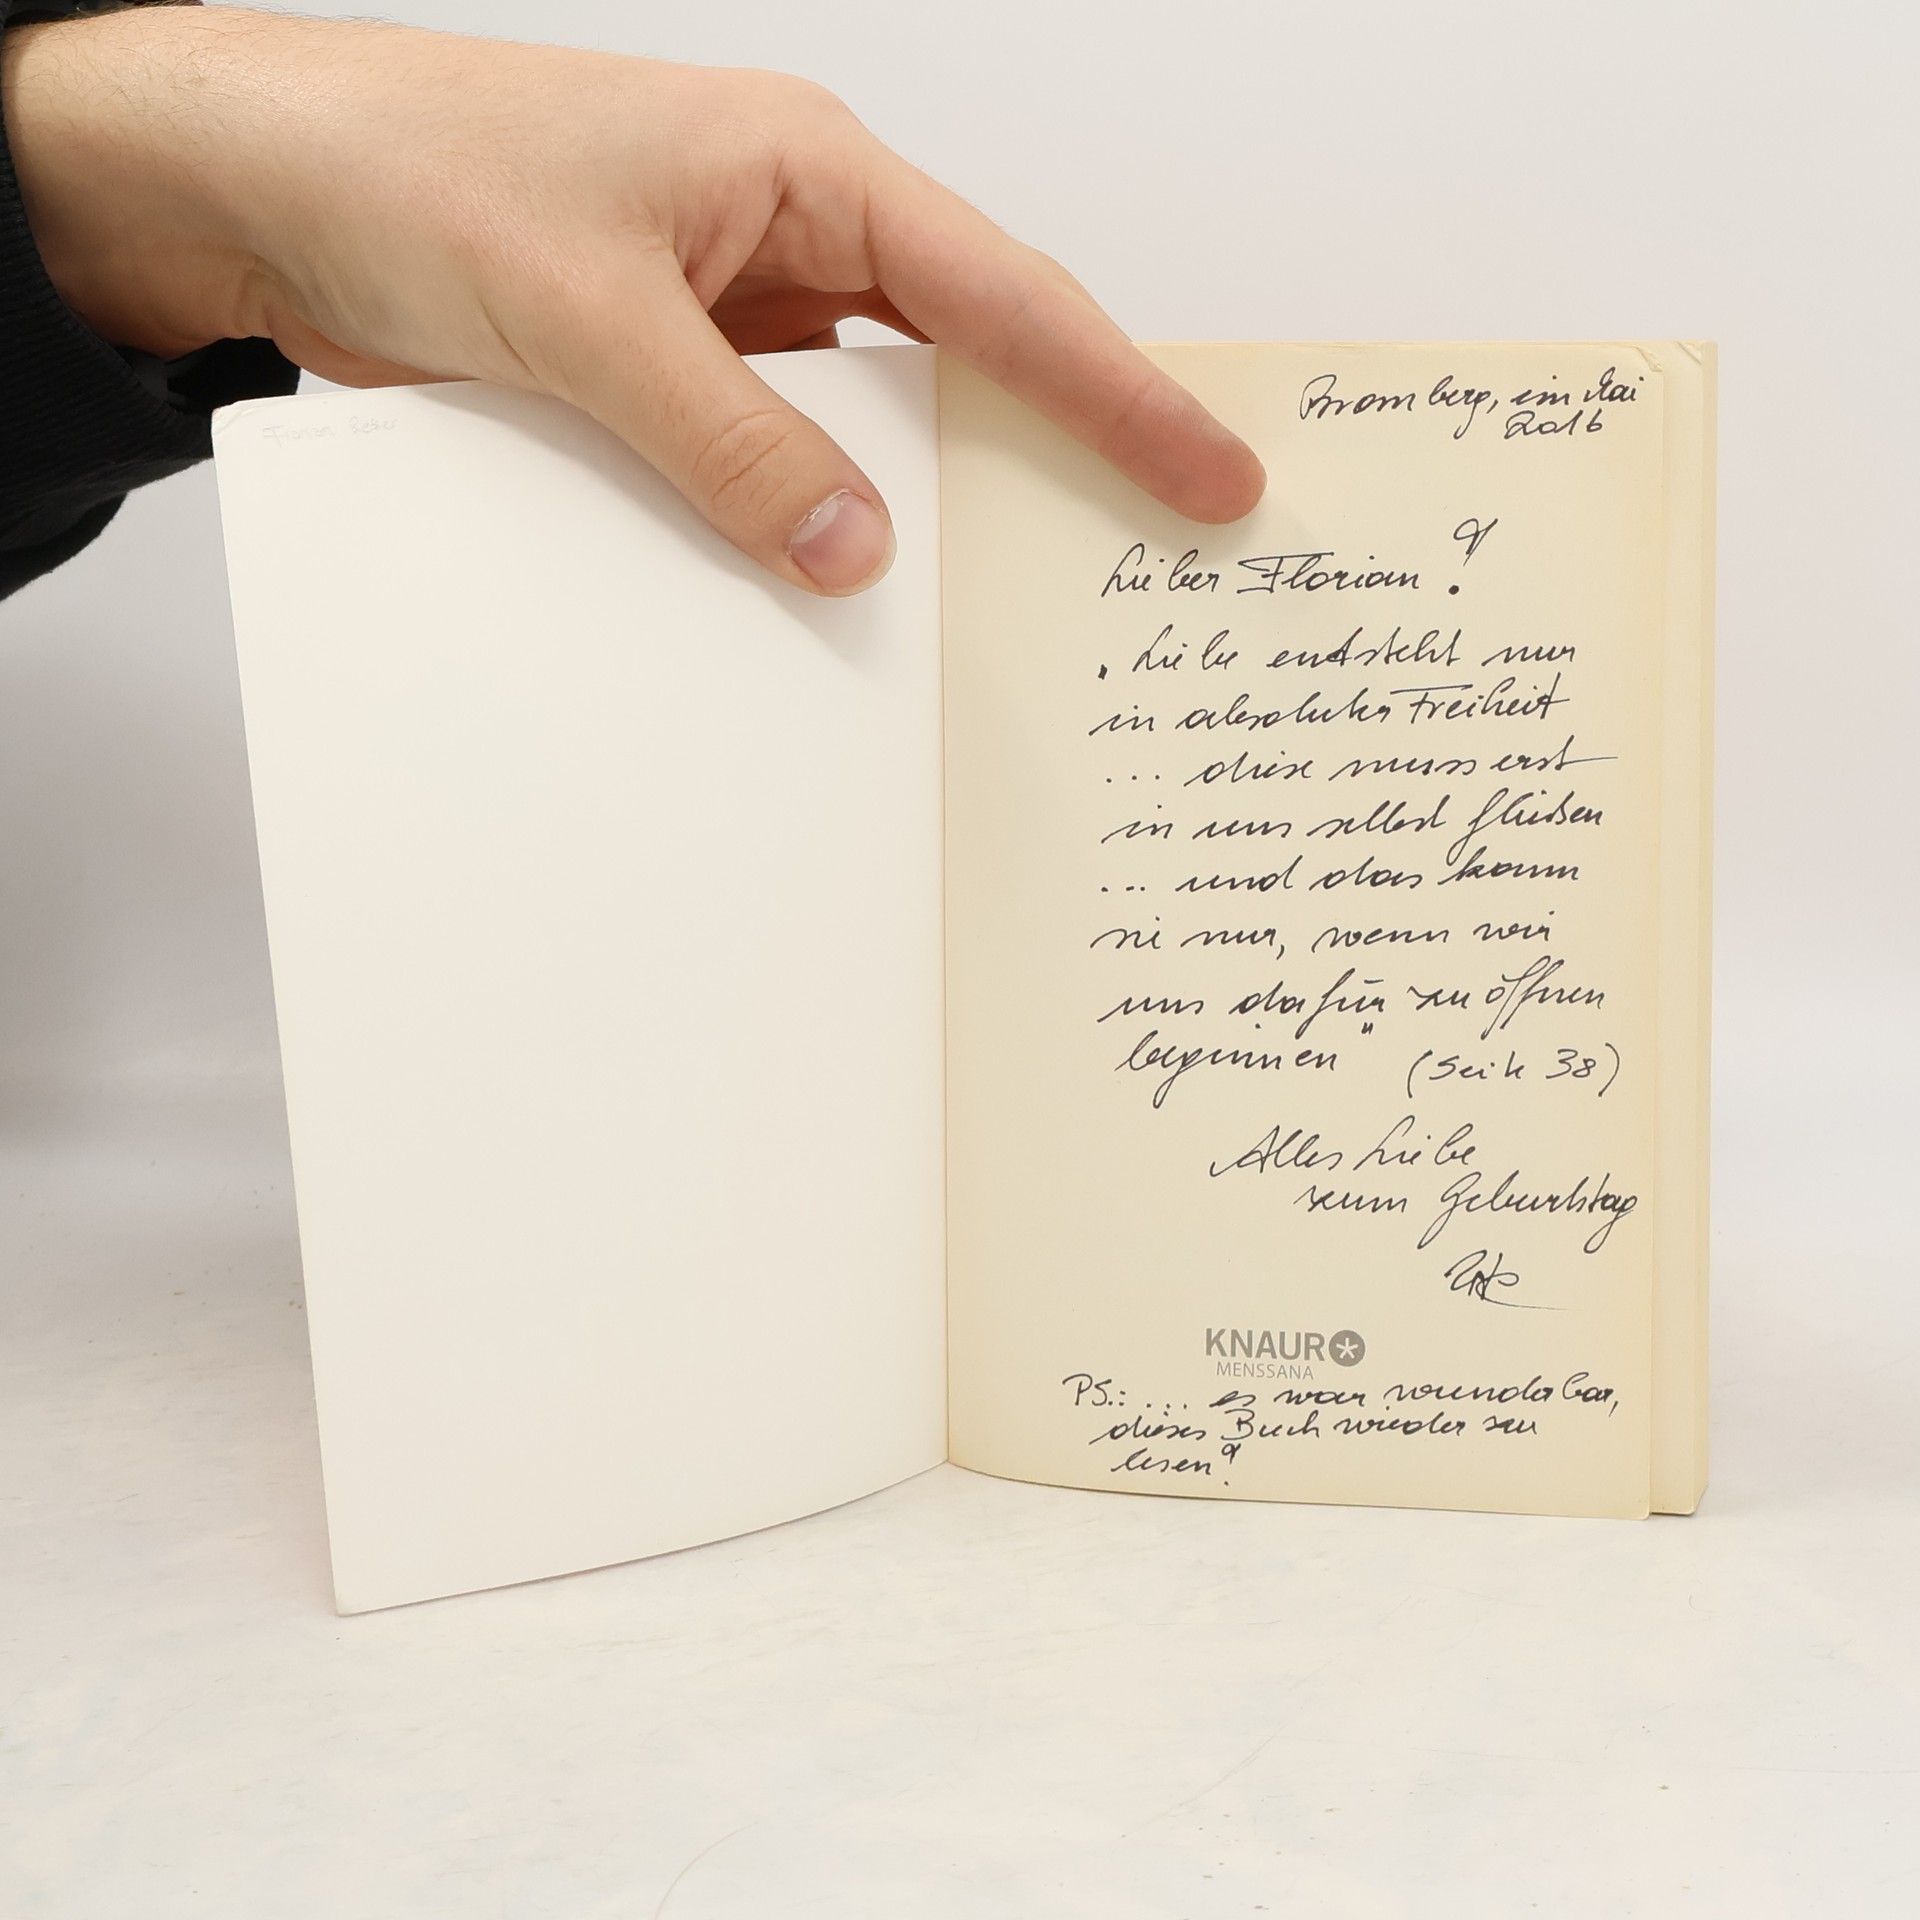 Florian
Bromberg, im Mai
2016
Lieber Florian!
„Liebe entsteht nur
in absoluter Freiheit
... diese muss erst
in uns selbst fließen
... und das kann
sie nur, wenn wir
uns dafür zu öffnen
beginnen" (Seite 38)
Alles Liebe
zum Geburtstag
KNAUR
MENSSANA
PS.: ... es war wunderbar,
dieses Buch wieder zu
lesen!